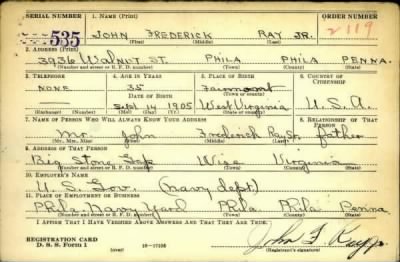 SERIAL NUMBER 1. NAME (Print) ORDER NUMBER
535 JOHN FREDERICK RAY JR. 2119
(First) (Middle) (Last)
2. ADDRESS (Print)
3936 WALNUT ST. PHILA PHILA PENNA.
(Number and street or R. F. D. number) (Town) (County) (State)
3. TELEPHONE 4. AGE IN YEARS 5. PLACE OF BIRTH 6. COUNTRY OF CITIZENSHIP
NONE 35 Fairmont
DATE OF BIRTH (Town or county)
Sept 14 1905 West Virginia U.S.A.
(Exchange) (Number) (Mo.) (Day) (Yr.) (State or country)
7. NAME OF PERSON WHO WILL ALWAYS KNOW YOUR ADDRESS 8. RELATIONSHIP OF THAT PERSON
Mr. John Frederick Ray Sr. father
(Mr., Mrs., Miss) (First) (Middle) (Last)
9. ADDRESS OF THAT PERSON
Big Stone Gap Wise Virginia
(Number and street or R. F. D. number) (Town) (County) (State)
10. EMPLOYER'S NAME
U.S. Gov. (navy dept.)
11. PLACE OF EMPLOYMENT OR BUSINESS
Phila Navy Yard Phila. Phila Penna
(Number and street or R. F. D. number) (Town) (County) (State)
I AFFIRM THAT I HAVE VERIFIED ABOVE ANSWERS AND THAT THEY ARE TRUE.
John F Ray Jr.
REGISTRATION CARD
D. S. S. Form 1 (over) (Registrant's signature)